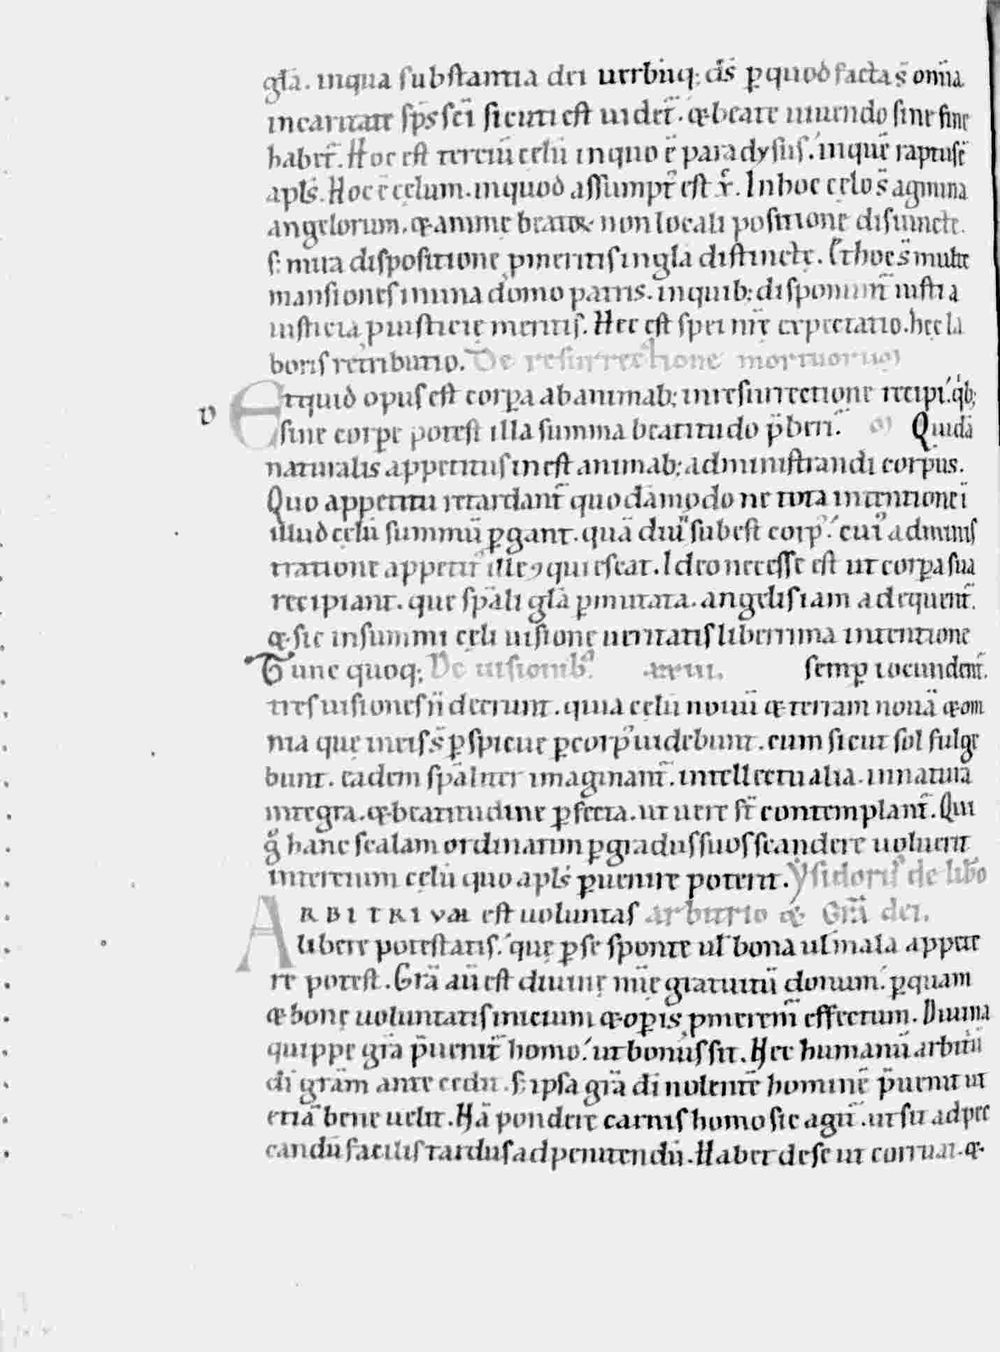 gl̄a. inqua substantia dei uerbiq; d̄s ꝑquod facta s̄ om̄ia
incaritate sp̄s sc̄i sicuti est uidet᷑. ⁊ beate uiuendo sine fine
habet᷑. Hoc est terciū celū inquo ē paradysus. inquē raptus ē
apl̄s. Hoc ē cęlum. inquod assumpt᷑ est x̄. Inhoc cęlo s̄ agmina
angelorum. ⁊ animę beatoꝝ non locali positione disiuncte.
s; miia dispositione ꝓmeritis ingl̄a distinctę. Et hoc s̄ multe
mansiones inuna domo patris. inquib; disponunt᷑ iusti a
iusticia ꝓiusticię meritis. Hec est spei nr̄ę expectatio. hęc la
boris retributio. De resurrectione mortuoruꝫ
v Etquid opus est corꝑa abanimab; inresurrectione recipi. qͥb;
sine corꝑe potest illa summa beatitudo p̄beri. Quidā
naturalis appetitus inest animab; administrandi corpus.
Quo appetitu retardant᷑ quodāmodo ne tota intentione ī
illud cęlū summū ꝑgant. quādiu subest corp᷒. cui᷒ adminis
tratione appetit᷒ ille ꝯquiescat. Ideo necesse est ut corꝑa sua
recipiant. que sp̄ali gl̄a ꝑmutata. angelis iam adequent᷑.
⁊ sic insummi cęli uisione ueritatis liberrima intentione
Tunc quoq; De uisionib᷒ xxiii. semꝑ iocundent᷑.
tres uisiones n̄ deerunt. quia cęlū nouū ⁊ terram nouā ⁊ om
nia quę ineis s̄ ꝑspicue ꝑcorp᷒ uidebunt. cum sicut sol fulge
bunt. eadem sp̄aliter imaginant᷑. intellectualia. innatura
integra. ⁊ beatitudine ꝑfecta. ut uere st̄ contemplant᷑. Qui
gͦ hanc scalam ordinatim ꝑgradus suos scandere uoluerit
intertium celū quo apl̄s ꝑuenire poterit. Ysidorus de lib̄o
ARBITRIVM est uoluntas arbitrio ⁊ Gr̄a dei.
libere potestatis. que ꝑse sponte ul̄ bona ul̄ mala appete
re potest. Gr̄a aū est diuinę mīe gratuitū donum. ꝑquam
⁊ bonę uoluntatis inicium ⁊ oꝑis ꝓmeremr̄ effectum. Diuina
quippe gr̄a p̄uenit᷑ homo. ut bonus sit. Nec humanū arbitriū
di gr̄am antecedit. s; ipsa gr̄a di nolentē hominē p̄uenit ut
etiā bene uelit. Nā pondere carnis homo sic agit᷑. ut sit adpec
candū facilis tardus adpenitendū. Habet dese ut corruat. ⁊